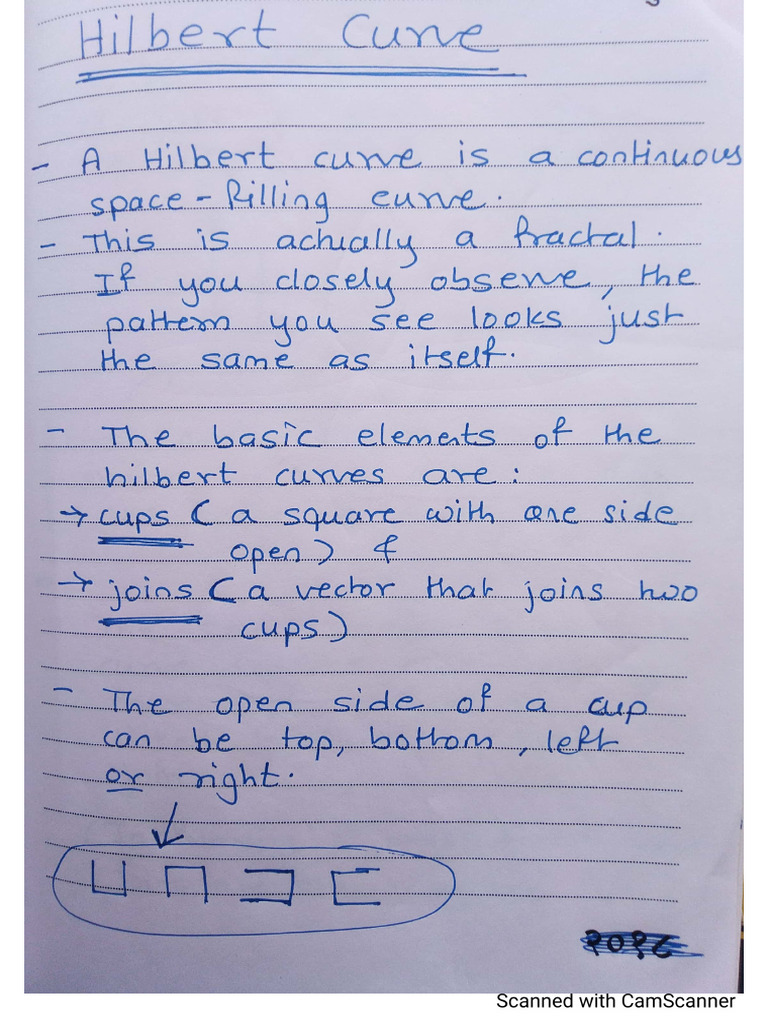 Hilbert Curve
- A Hilbert curve is a continuous
space-filling curve.
- This is actually a fractal.
If you closely observe, the
pattern you see looks just
the same as itself.
- The basic elements of the
hilbert curves are:
→ cups ( a square with one side
open) &
→ joins ( a vector that joins two
cups)
- The open side of a cup
can be top, bottom, left
or right.
Scanned with CamScanner